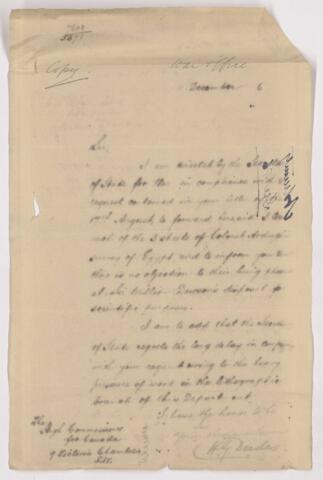 Copy.
War Office
December 6
Sir,
I am directed by the Secret
of State for War in compliance with a
request contained in your letter of the
August, to forward herewith 1 Com
of the 3 sheets of Colonel Ardagh
survey of Egypt, and to inform you th
there is no objection to their being place
at Sir William Dawson's disposal for
scientific purposes.
I am to add that the Secre
of State regrets the long delay in comply
with your request owing to the heavy
pressure of work in the Lithographic
branch of this Department.
I have the honor to be
The
High Commissioner
for Canada
9 Victoria Chambers,
S.W.